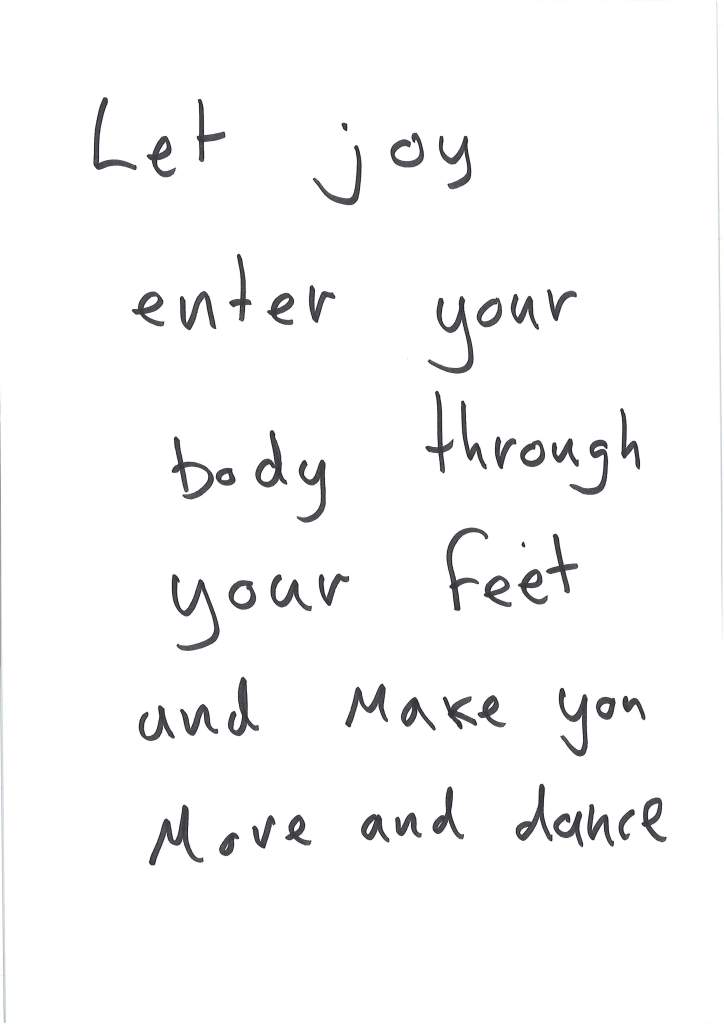 Let joy
enter your
body through
your feet
and Make you
Move and dance